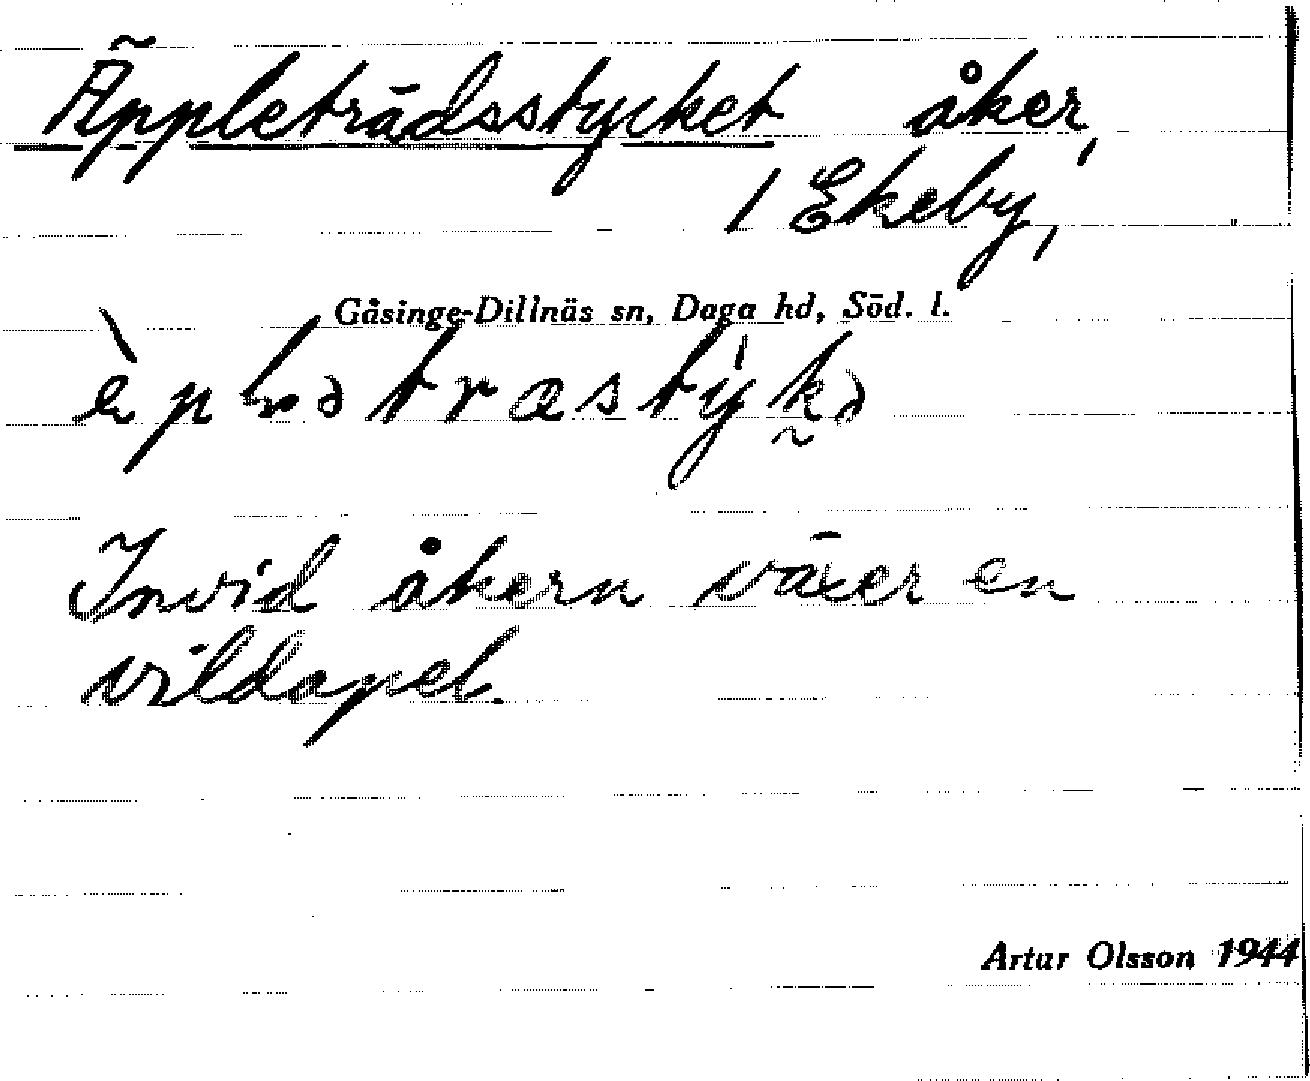 Äppleträdsstycket åker,
/ Ekeby,
Gåsinge-Dillnäs sn, Daga hd, Söd. l.
Invid åkern växer en
vildapel.
Artur Olsson 1944